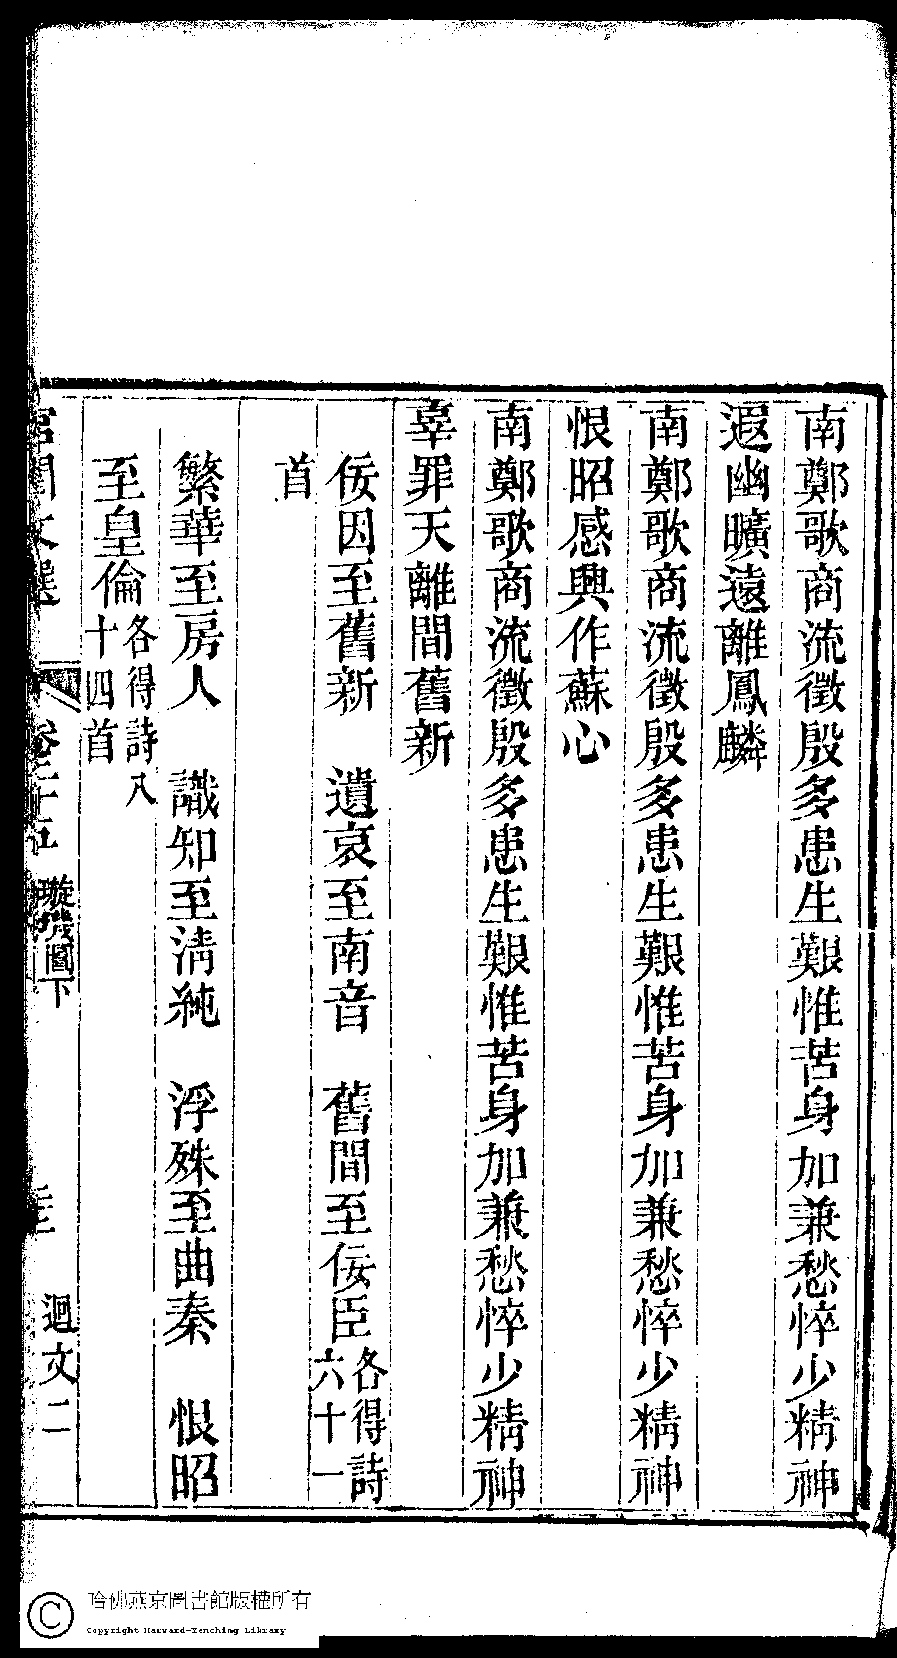 南鄭歌商流徵殷多患生艱惟苦身加兼愁悴少精神
遐幽曠遠離鳳麟
南鄭歌商流徵殷多患生艱惟苦身加兼愁悴少精神
恨昭感興作蘇心
南鄭歌商流徵殷多患生艱惟苦身加兼愁悴少精神
辜罪天離間舊新
佞因至舊新 遺哀至南音 舊間至佞臣各得詩六十一
首
繁華至房人 識知至淸純 浮殊至曲秦 恨昭
至皇倫各得詩八十四首
宮閨文選 卷二十五 璇璣圖下 迴文二
哈佛燕京圖書館版權所有
Copyright Harvard-Yenching Library